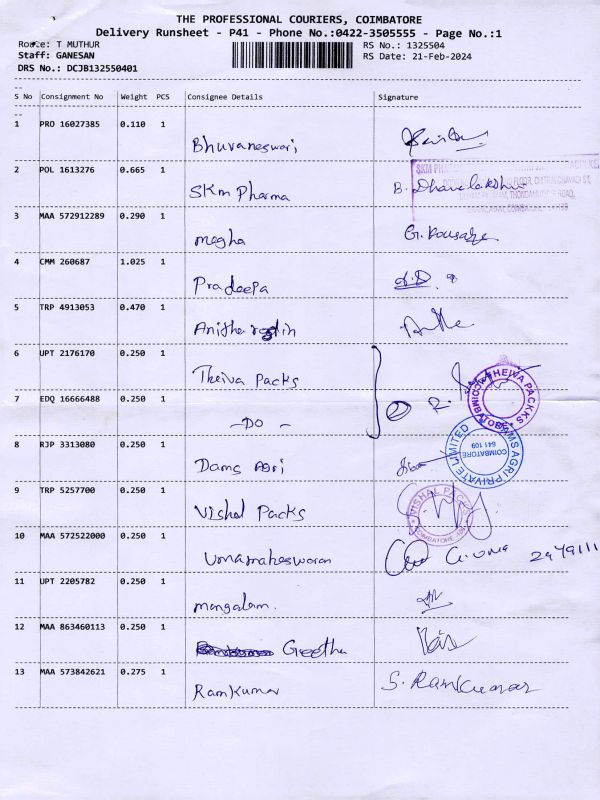 THE PROFESSIONAL COURIERS, COIMBATORE
Delivery Runsheet - P41 - Phone No.:0422-3505555 - Page No.:1
Route: T MUTHUR
RS No.: 1325504
Staff: GANESAN
RS Date: 21-Feb-2024
DRS No.: DCJB132550401
S No Consignment No Weight PCS Consignee Details Signature
1 PRO 16027385 0.110 1 Bhuvaneswari
2 POL 1613276 0.665 1 SKm Pharma B. Dhanalakshmi
SKM PHARMA
3 MAA 572912289 0.290 1 megha G. Kousalya
4 CMM 260687 1.025 1 Pradeepa
5 TRP 4913053 0.470 1 Anitha
6 UPT 2176170 0.250 1 Theiva Packs
THEIVA PACKKS COIMBATORE
7 EDQ 16666488 0.250 1 -DO-
8 RJP 3313080 0.250 1 Dams Agri
DAMSAGRI PRIVATE LIMITED
COIMBATORE
641 109
9 TRP 5257700 0.250 1 Vishal Packs
VISHAL PACKS
COIMBATORE
10 MAA 572522000 0.250 1 Umamaheswaran G. Uma
11 UPT 2205782 0.250 1 mangalam.
12 MAA 863460113 0.250 1 Geetha
13 MAA 573842621 0.275 1 Ramkumar S. Ramkumar